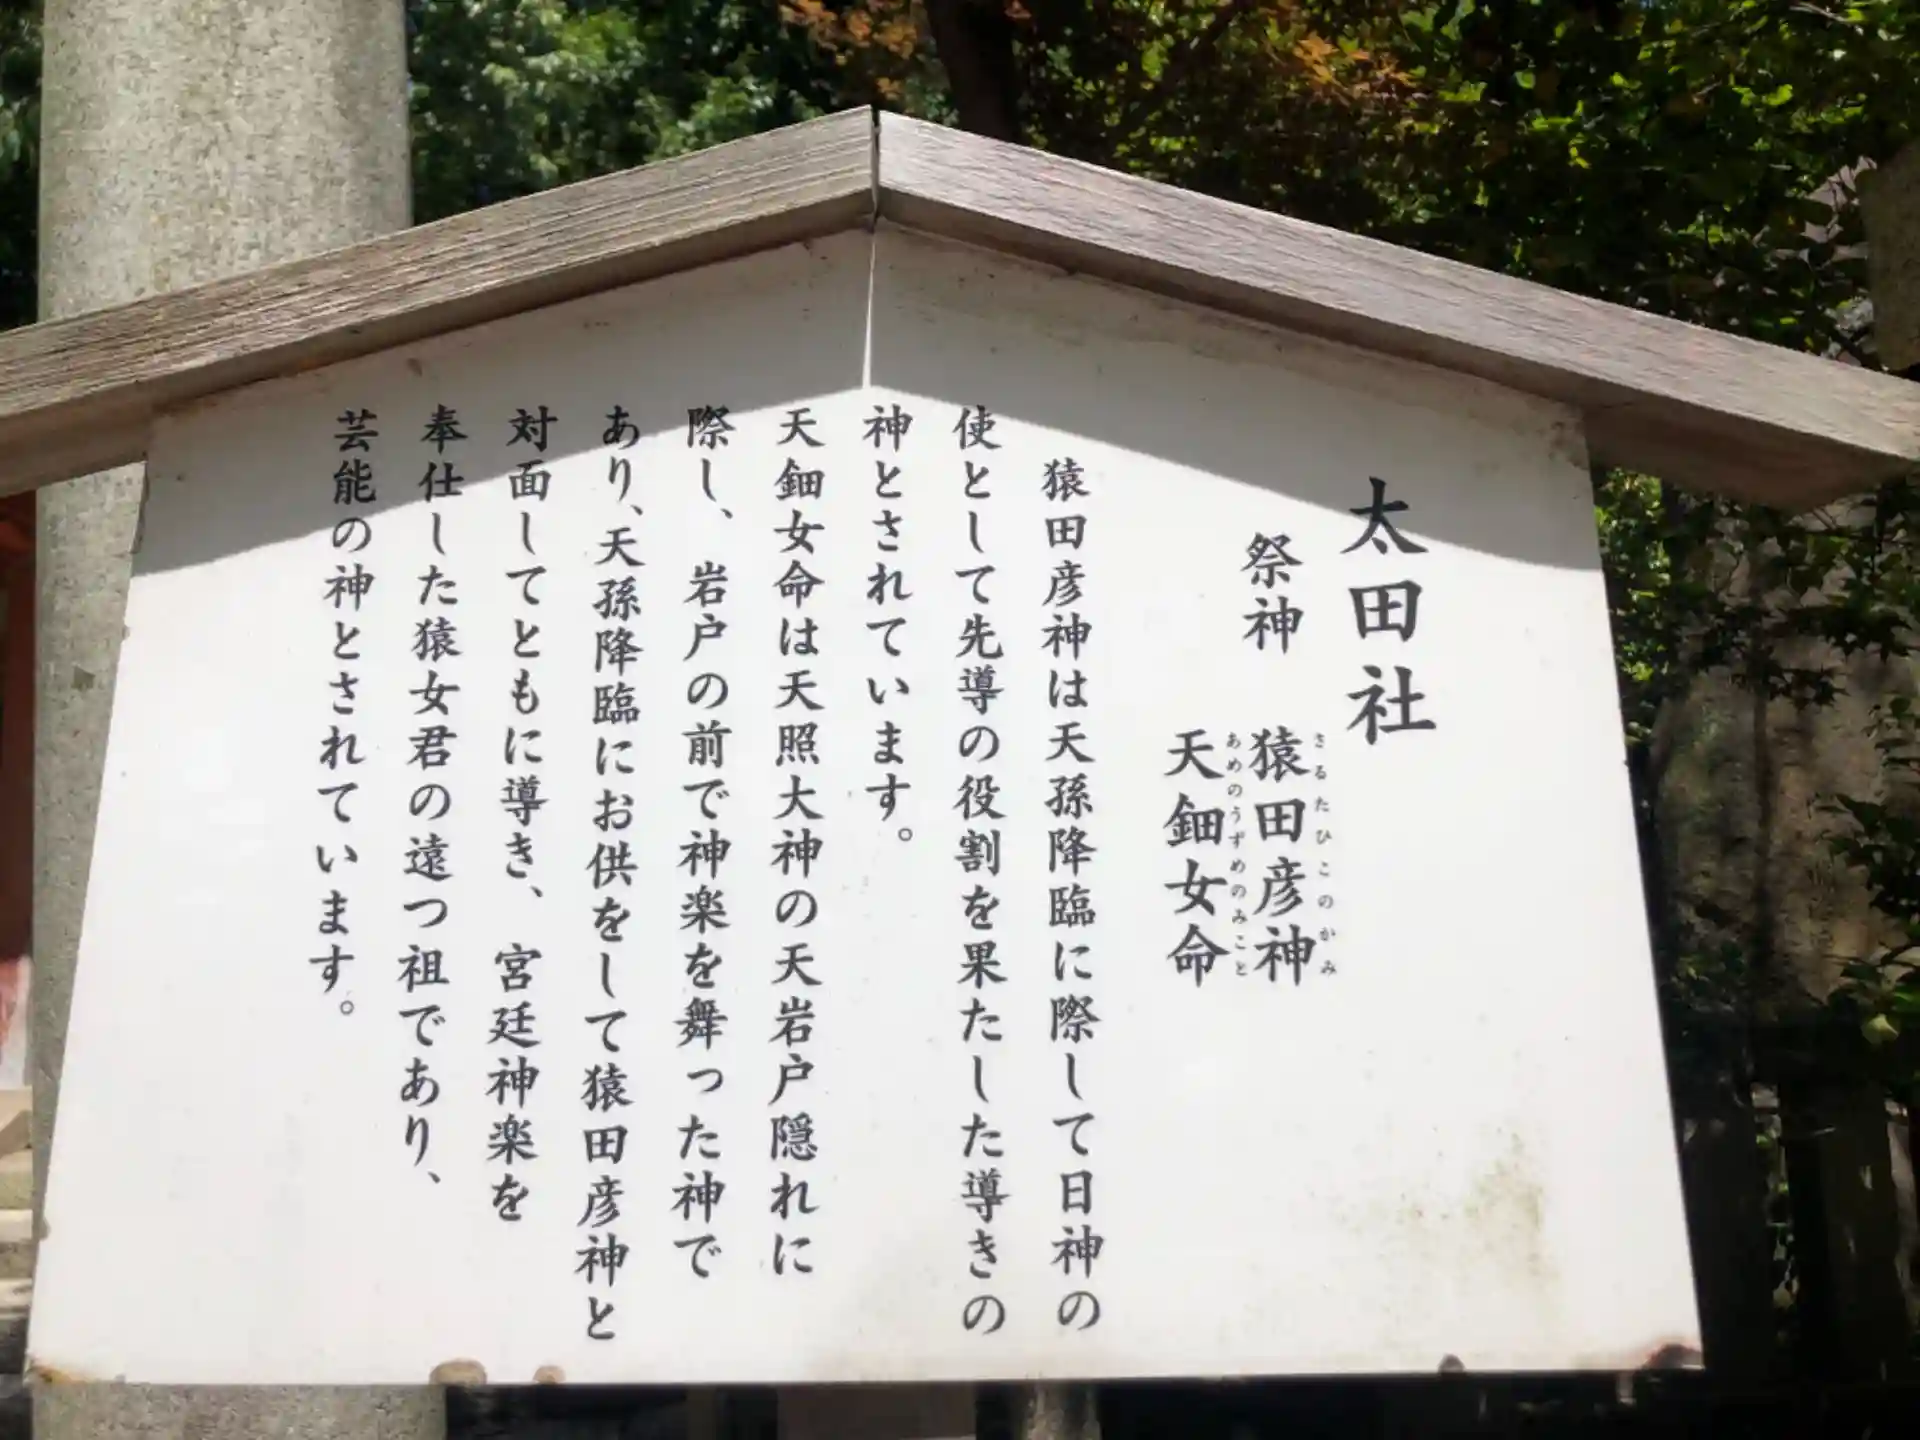 太田社
祭神　猿田彦神
さるたひこのかみ
天鈿女命
あめのうずめのみこと
猿田彦神は天孫降臨に際して日神の
使として先導の役割を果たした導きの
神とされています。
天鈿女命は天照大神の天岩戸隠れに
際し、岩戸の前で神楽を舞った神で
あり、天孫降臨にお供をして猿田彦神と
対面してともに導き、宮廷神楽を
奉仕した猿女君の遠つ祖であり、
芸能の神とされています。